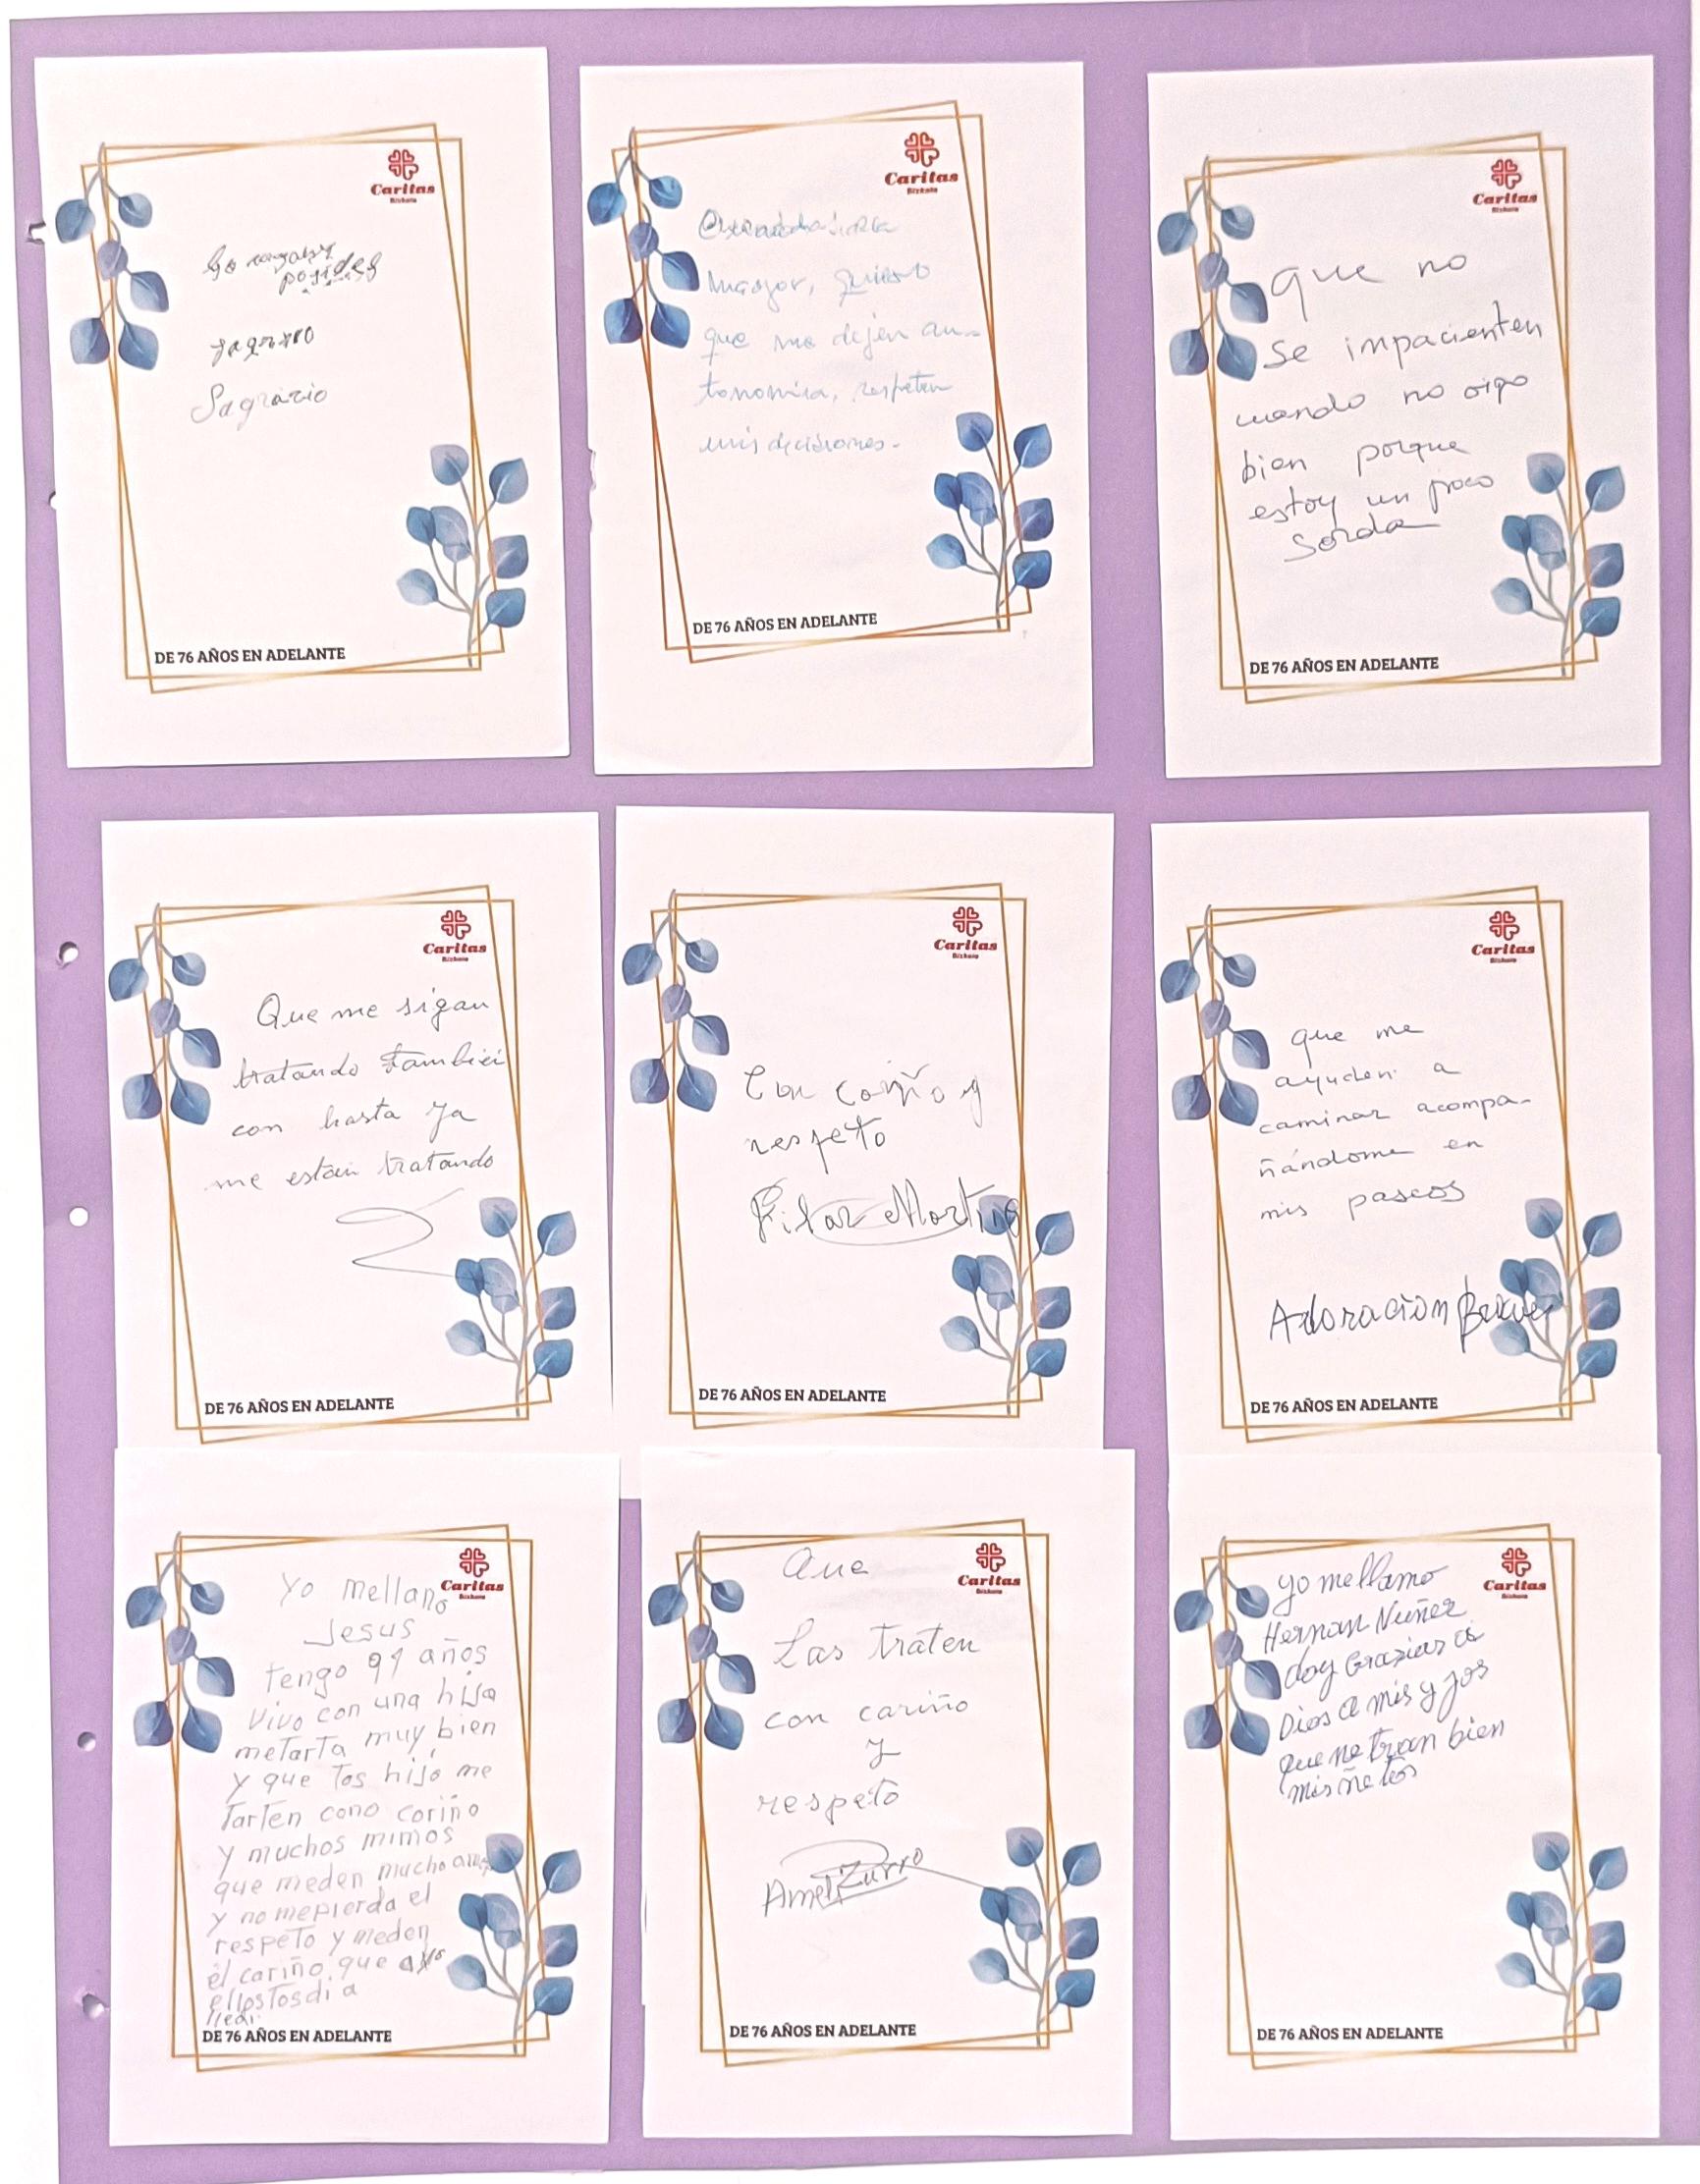 Caritas
Bizkaia
Sagrario
DE 76 AÑOS EN ADELANTE
Caritas
Bizkaia
mayor, quiero
que me dejen au-
tonomia, respeten
mis decisiones.
DE 76 AÑOS EN ADELANTE
Caritas
Bizkaia
que no
se impacienten
cuando no oigo
bien porque
estoy un poco
Sorda
DE 76 AÑOS EN ADELANTE
Caritas
Bizkaia
Que me sigan
tratando tambien
con hasta ya
me estan tratando
DE 76 AÑOS EN ADELANTE
Caritas
Bizkaia
Con cariño y
respeto
Pilar
DE 76 AÑOS EN ADELANTE
Caritas
Bizkaia
que me
ayuden a
caminar acompa-
ñándome en
mis paseos
Adoracion
DE 76 AÑOS EN ADELANTE
Caritas
Bizkaia
Yo mellano
Jesus
tengo 91 años
vivo con una hija
metarta muy bien
y que tos hijo me
tarten cono coriño
y muchos mimos
que meden mucho
y no mepierda el
respeto y meden
el cariño que
ellos tos di a
DE 76 AÑOS EN ADELANTE
Caritas
Bizkaia
Que
Las traten
con cariño
y
respeto
Zurro
DE 76 AÑOS EN ADELANTE
Caritas
Bizkaia
yo mellamo
Hernan Nuñez
doy Grazias a
Dios a mis y jos
que ne tran bien
mis ñetos
DE 76 AÑOS EN ADELANTE